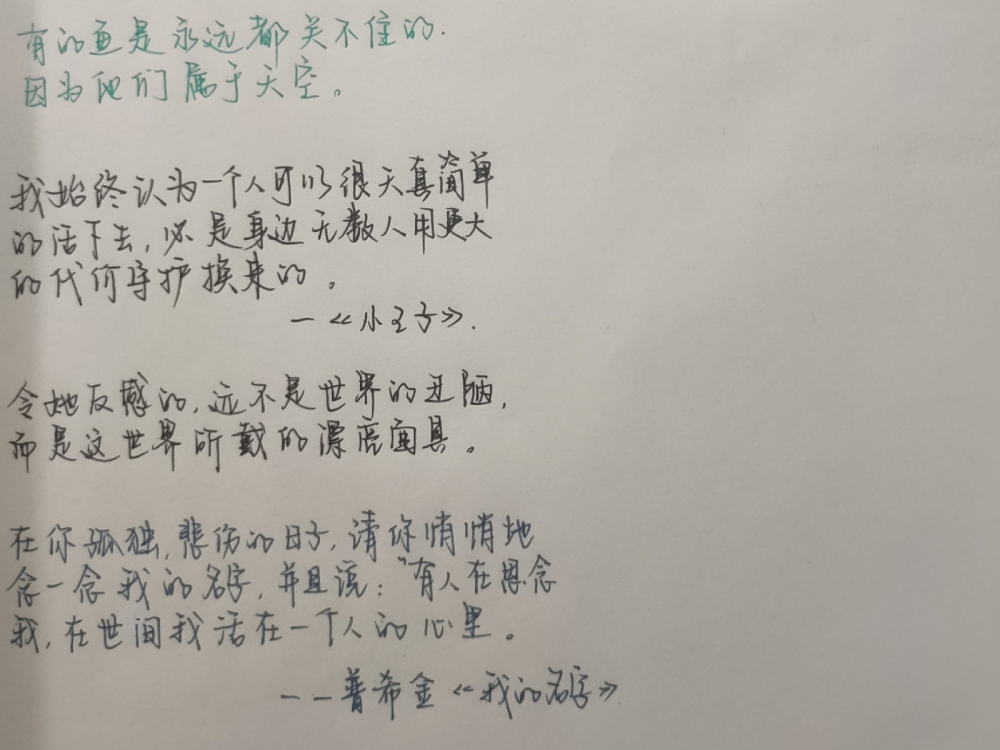 有的鱼是永远都关不住的.
因为他们属于天空。
我始终认为一个人可以很天真简单
的活下去,必是身边无数人用更大
的代价守护换来的。
—《小王子》.
令她反感的,远不是世界的丑陋,
而是这世界所戴的漂亮面具。
在你孤独,悲伤的日子,请你悄悄地
念一念我的名字,并且说:“有人在思念
我,在世间我活在一个人的心里。
——普希金《我的名字》